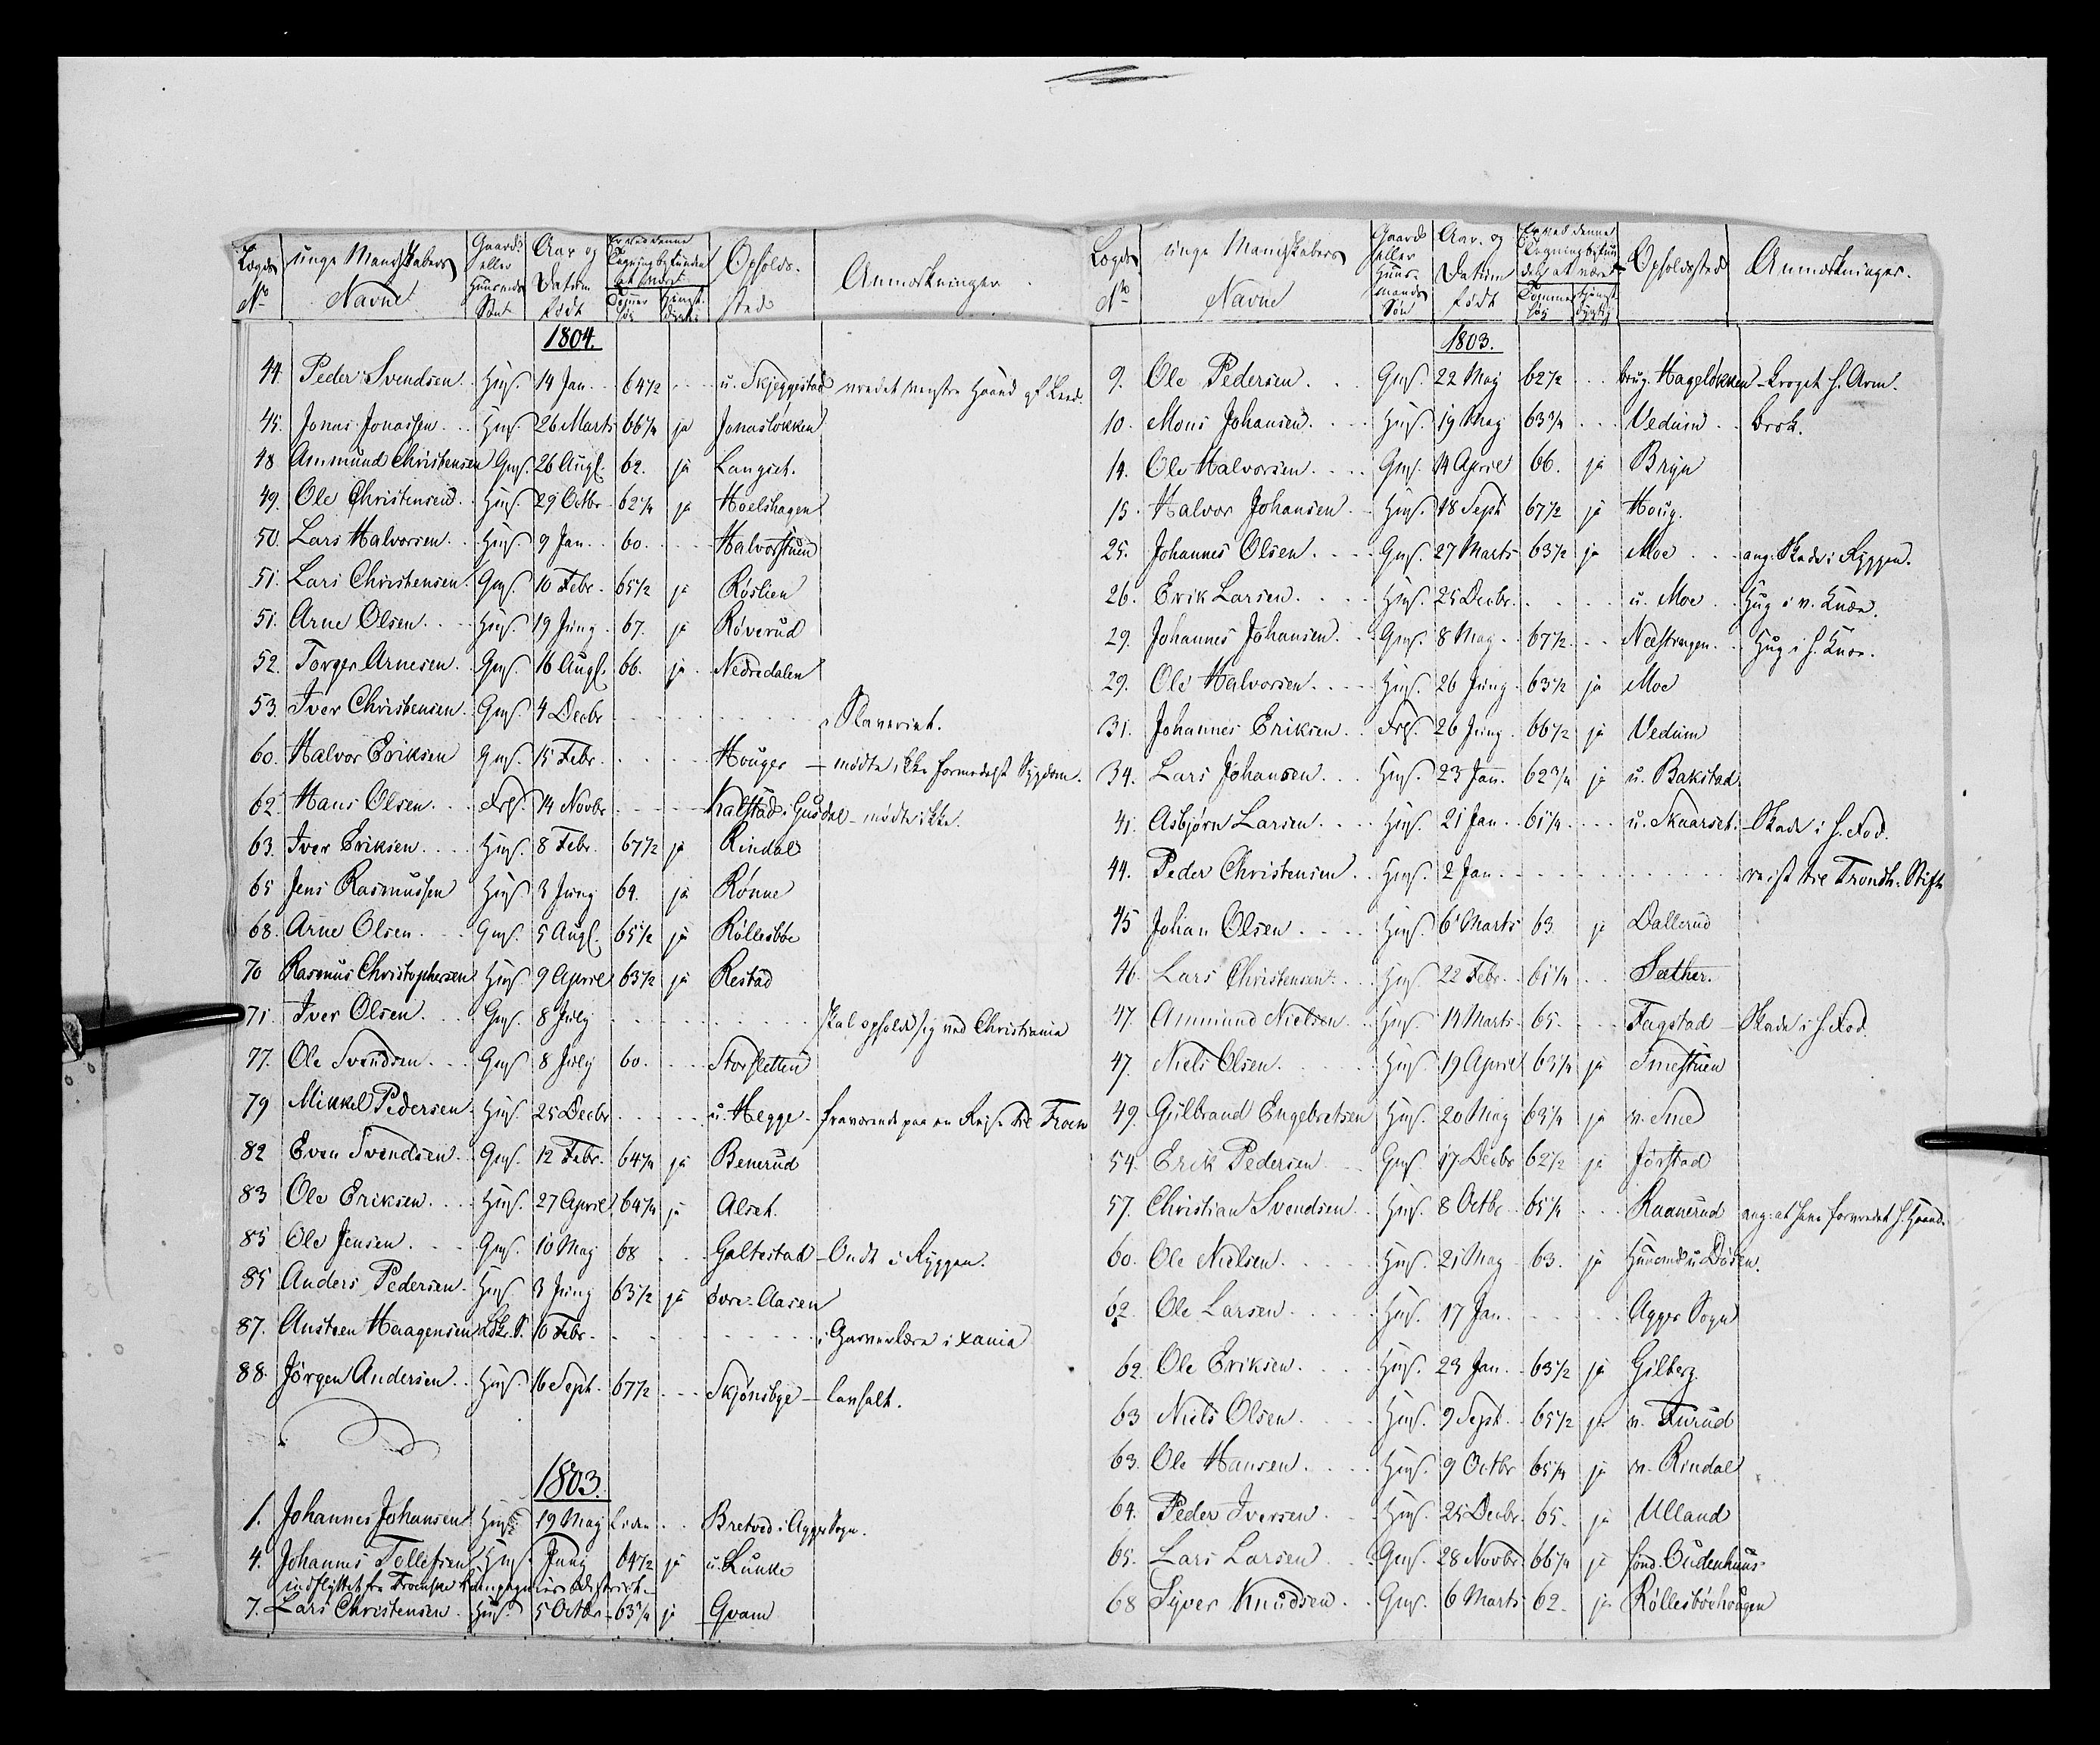 Lægds No | unge Mandskabers Navne | Gaard- eller Huusmands Søn | Aar og Datum født | Er ved denne Tegning befunden at være Tommer høi | Tjenst- dygtig | Opholds- sted | Anmærkninger
1804.
44. Peder Svendsen. Hms. 14 Jan. 64 1/2 u. Skjeggestad vredet venstre Haand af Leed.
45. Jonas Jonassen Hms. 26 Marts 66 1/4 ja Jonasløkken
48 Ammund Christensen Gms. 26 Augs. 62. ja Langset.
49. Ole Christensen Hms. 29 Octbr 62 1/4 ja Hoelshagen
50. Lars Halvorsen Hms. 9 Jan. 60. Halvorstuen
51. Lars Christensen Gms. 10 Febr. 65 1/2 ja Røslien
51. Arne Olsen Hms. 19 Juny 67. ja Røverud
52. Torger Arnesen Gms. 16 Augs. 66. ja Nedredalen
53. Iver Christensen Gms. 4 Decbr i Slaveriet.
60. Halvor Eriksen Gms. 15 Febr. Houger – mødte ikke formedelst Sygdom.
62. Hans Olsen 14 Novbr Kalstad i Gusdal – mødte ikke.
63. Iver Eriksen Hms. 8 Febr. 67 1/2 ja Rindal
65 Jens Rasmussen Hms. 3 Juny 64. ja Rønne
68. Arne Olsen Gms. 5 Augs. 65 1/2 ja Røllesbøe
70 Rasmus Christophersen Hms. 9 April 63 1/2 ja Restad
71. Iver Olsen. Gms. 8 July skal opholde sig ved Christiania
77. Ole Svendsen Gms. 8 July 60. Storsletten
79 Mikkel Pedersen Hms. 25 Decbr u. Hegge – fraværende paa en Reise til
82 Even Svendsen Gms. 12 Febr. 64 1/4 ja Benerud
83 Ole Eriksen Hms. 27 April 64 1/4 ja Alset.
85 Ole Jensen Gms. 10 May 68 Galtestad – Ondt i Ryggen.
85 Anders Pedersen Hms. 3 Juny 63 1/2 ja øvre Aasen
87. Austeen Haagensen 10 Febr. i Garverlære i Xania
88. Jørgen Andersen Hms. 16 Sept. 67 1/2 Skjønsbye – lamhalt.
1803.
1. Johannes Johansen Hms. 19 May Bretved i Agger Sogn.
4. Johannes Tollefsen Hms. Juny 64 1/2 ja u. Lunke
indflyttet fra
7. Lars Christensen Hms. 5 Octbr. 63 3/4 ja Qvam
Lægds No | unge Mandskabers Navne | Gaard eller Huus- mands Søn | Aar og Datum født | Er ved denne Tegning befun- det at være Tommer høi | tjenst- dygtig | Opholdssted | Anmærkninger.
1803.
9. Ole Pedersen. Gms. 22 May 62 1/2 brug. Hageløkken – kroget h. Arm.
10. Mons Johansen. Hms. 19 May 63 3/4 Vedum brok.
14. Ole Halvorsen Gms. 14 April 66. ja Bryn
15. Halvor Johansen Hms. 18 Sept 67 1/2 ja Houg.
25. Johannes Olsen Gms. 27 Marts 63 1/2 ja Moe ang. Skade i Ryggen.
26. Erik Larsen Hms. 25 Decbr. u. Moe Hug i v. Knæe.
29. Johannes Johansen Gms. 8 May 67 1/2 Næstvangen Hug i h. Knæe.
29. Ole Halvorsen Hms. 26 Juny 63 1/2 ja Moe
31. Johannes Eriksen 26 Juny 66 1/2 ja Vedum
34. Lars Johansen Hms. 23 Jan. 62 3/4 ja u. Bakstad
41. Asbjørn Larsen Hms. 21 Jan. 61 1/4 u. Skaarset. – Skade i h. Fod.
44. Peder Christensen Hms. 2 Jan. reist til Trondh. Stift
45 Johan Olsen Hms. 6 Marts 63 ja Dallerud
46. Lars Christensen Hms. 22 Febr. 61 1/4 Sæther.
47. Ammund Nielsen Hms. 14 Marts 65. Fagstad – Skade i h. Fod.
47. Niels Olsen Hms. 19 April 63 1/4 ja Smestuen
49. Gulbrand Engebretsen Hms. 20 May 63 1/4 ja n. Smed
54. Erik Pedersen Gms. 17 Decbr 62 1/2 ja Jørstad
57. Christian Svendsen Hms. 8 Octbr. 65 1/4 Raanerud ang. at have forvredet h. Haand.
60. Ole Nielsen Hms. 21 May 63. ja
62. Ole Larsen Hms. 17 Jan. Agger Sogn
62. Ole Eriksen Hms. 23 Jan. 63 1/2 ja Gilberg.
63 Niels Olsen Hms. 9 Sept. 65 1/2 ja n. Furud
63. Ole Hansen Hms. 9 Octbr 65 1/4 ja n. Rindal
64. Peder Iversen Hms. 25 Decbr. 65. ja Ulland
65. Lars Larsen Gms. 28 Novbr. 66 1/4 ja sønd. Oudenhuus
68 Syver Knudsen Gms. 6 Marts 62. ja Røllesbøehougen